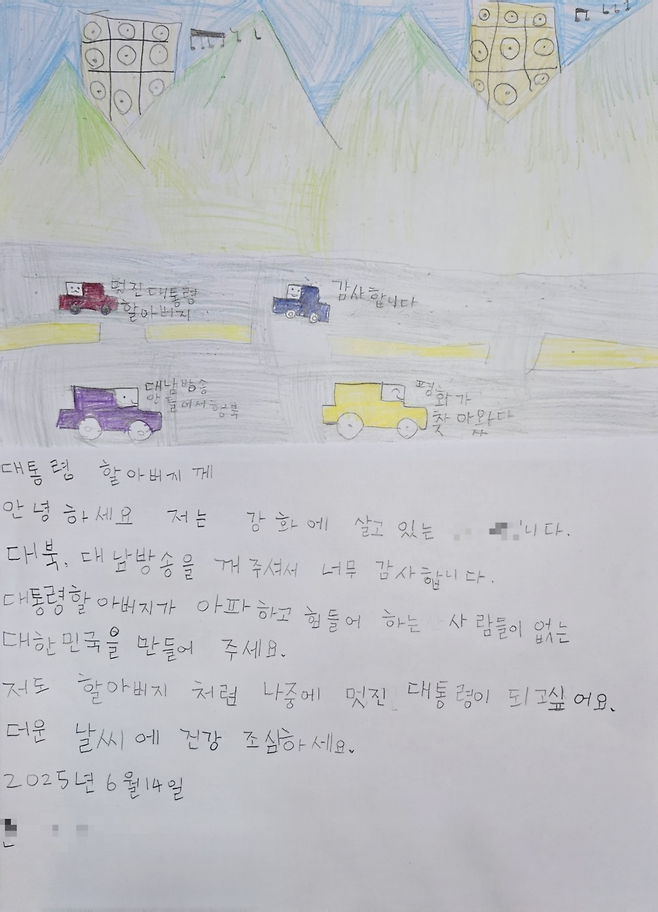 멋진대통령
할아버지
감사합니다
대남방송
안들어서행복
평화가
찾아왔다
대통령 할아버지께
안녕하세요 저는 강화에 살고 있는 니다.
대북, 대남방송을 꺼주셔서 너무 감사합니다.
대통령할아버지가 아파하고 힘들어 하는 사람들이 없는
대한민국을 만들어 주세요.
저도 할아버지 처럼 나중에 멋진 대통령이 되고싶어요.
더운 날씨에 건강 조심하세요.
2025년 6월 14일